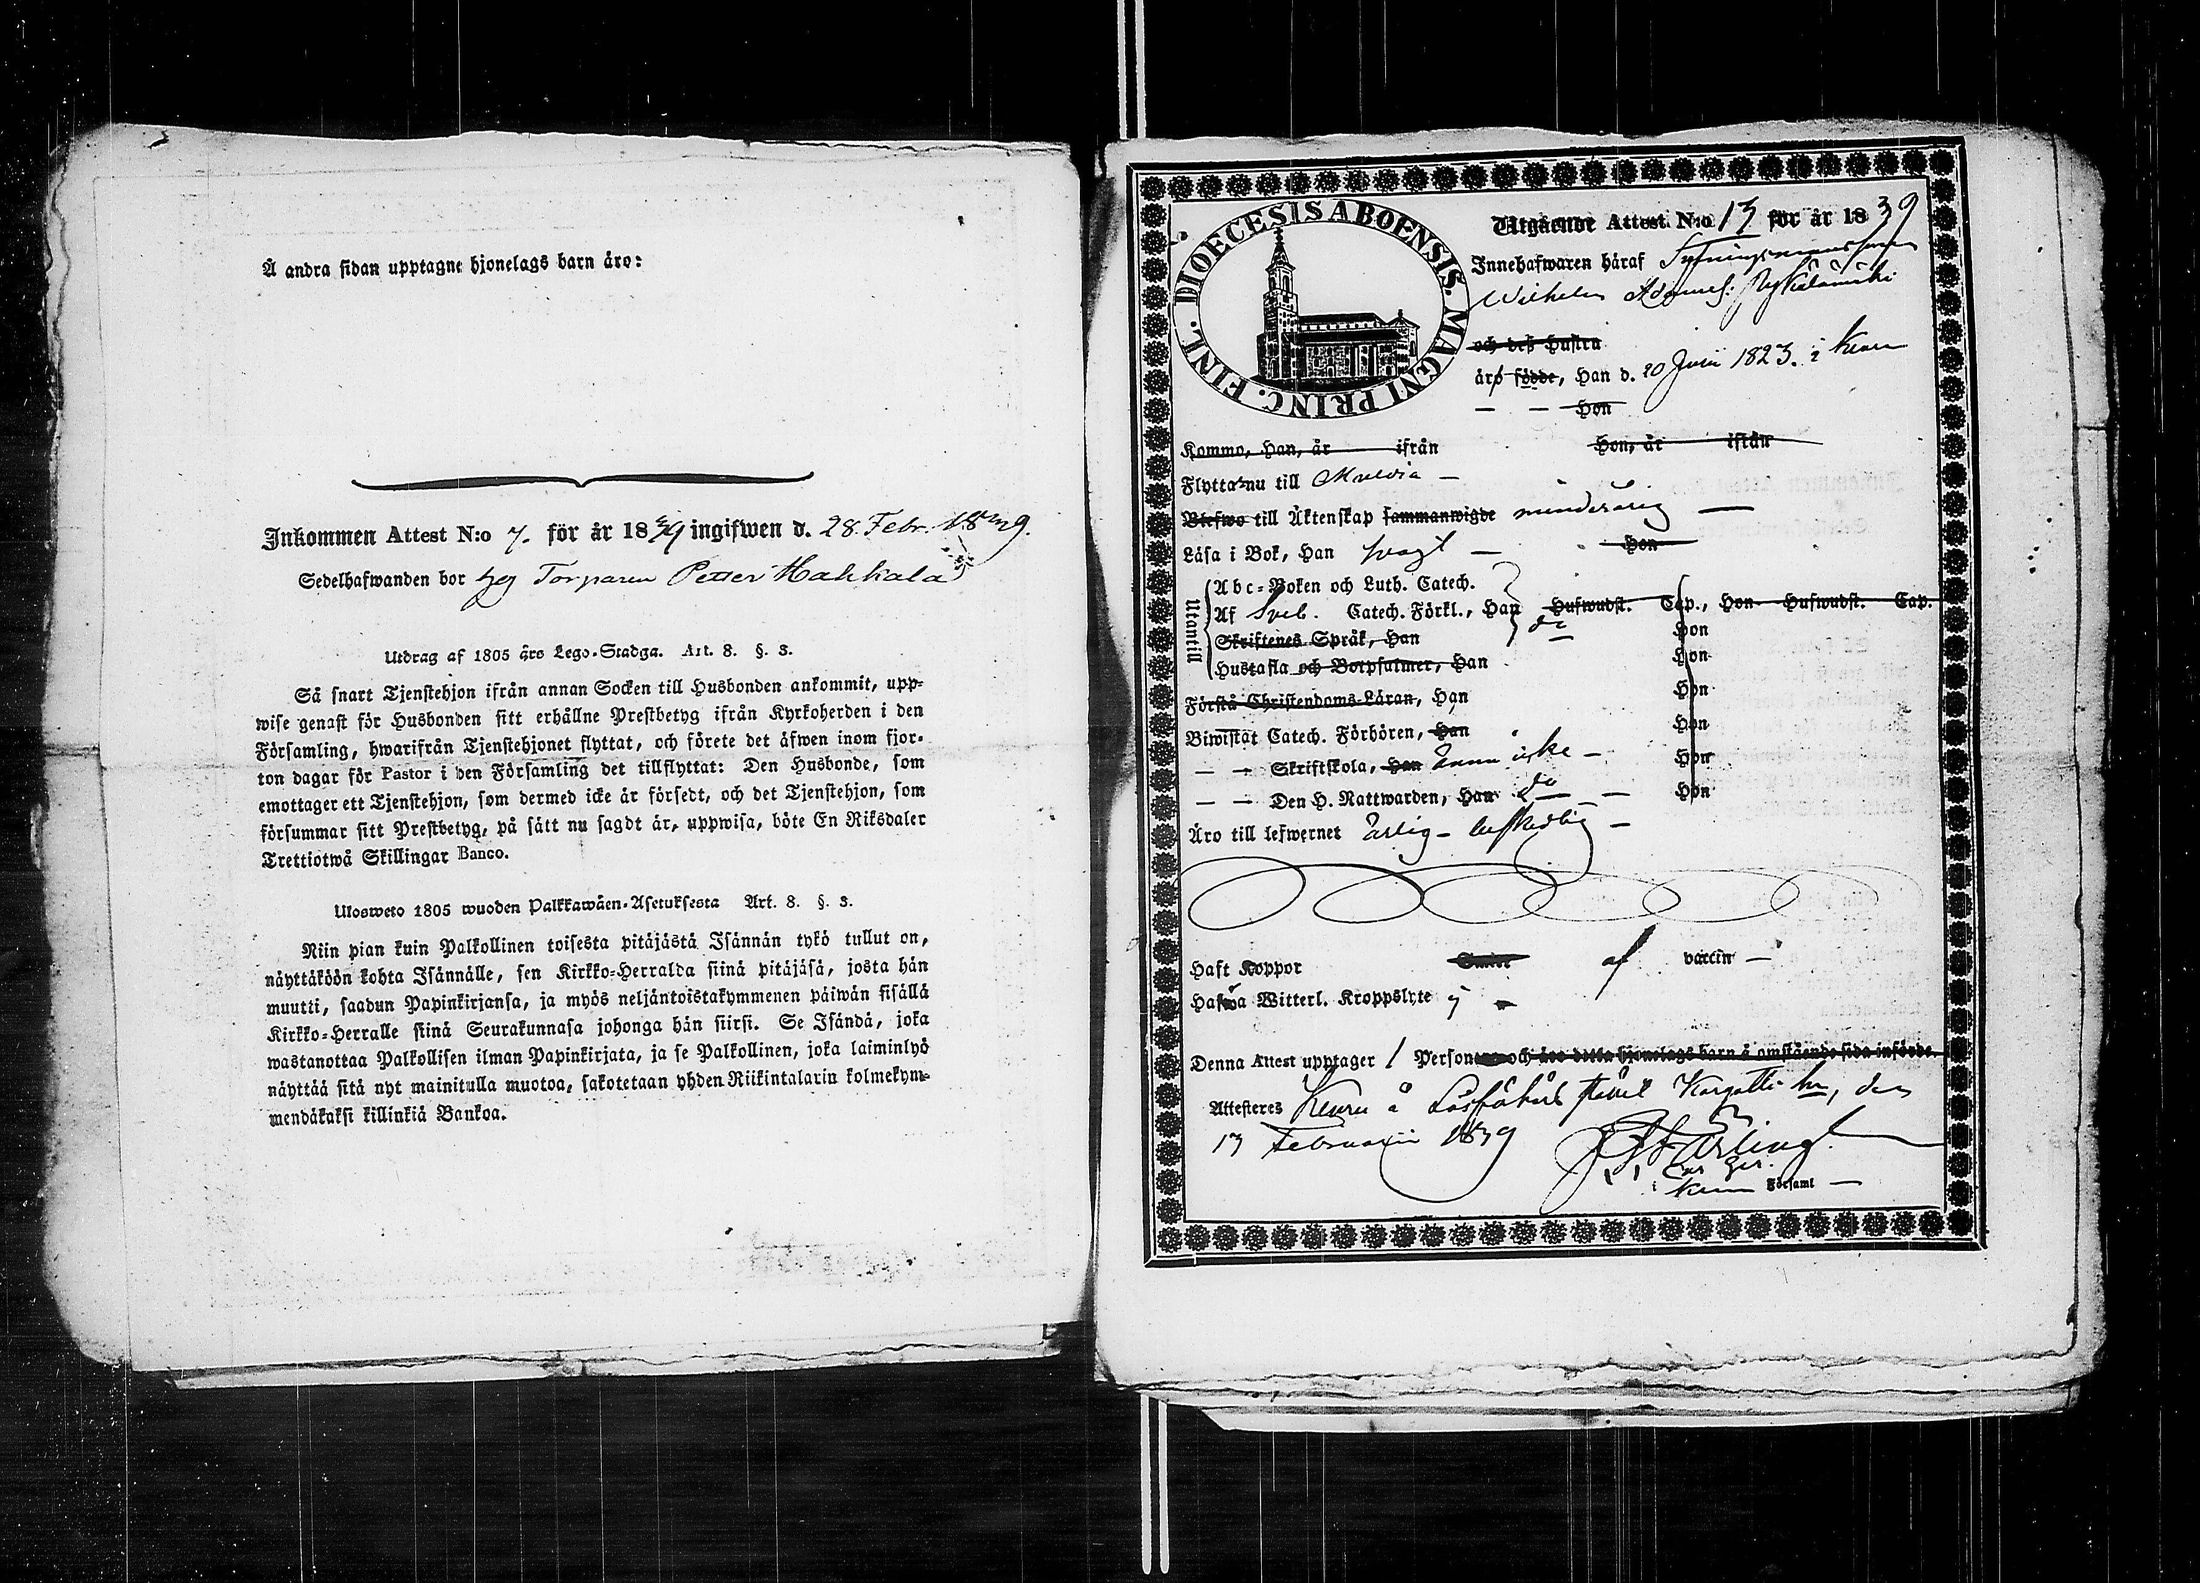 Å andra sidan upptagne hjonelags barn äro:
Inkommen Attest N:o 7. för år 1839 ingifwen d. 28 Febr. 1839.
Sedelhafwanden bor hos Torparen Petter Hakkala
Utdrag af 1805 års Lego-Stadga. Art. 8. §. 3.
Så snart Tjenstehjon ifrån annan Socken till Husbonden ankommit, upp-
wise genast för Husbonden sitt erhållne Prestbetyg ifrån Kyrkoherden i den
Församling, hwarifrån Tjenstehjonet flyttat, och förete det äfwen inom fjor-
ton dagar för Pastor i den Församling det tillflyttat: Den Husbonde, som
emottager ett Tjenstehjon, som dermed icke är försedt, och det Tjenstehjon, som
försummar sitt Prestbetyg, på sätt nu sagdt är, uppwisa, böte En Riksdaler
Trettiotwå Skillingar Banco.
Ulosweto 1805 wuoden Palkkawäen-Asetuksesta Art. 8. §. 3.
Niin pian kuin Palkollinen toisesta pitäjästä Isännän tykö tullut on,
näyttäköön kohta Isännälle, sen Kirkko-Herralda siinä pitäjäsä, josta hän
muutti, saadun Papinkirjansa, ja myös neljäntoistakymmenen päiwän sisällä
Kirkko-Herralle siinä Seurakunnasa johonga hän siirsi. Se Isändä, joka
wastanottaa Palkollisen ilman Papinkirjata, ja se Palkollinen, joka laiminlyö
näyttää sitä nyt mainitulla muotoa, sakotetaan yhden Riikintalarin kolmekym-
mendäkaksi killinkiä Bankoa.
DIOECESIS ABOENSIS. MAGNI PRINC. FINL.
Utgående Attest N:o 13 för år 1839
Innehafwaren häraf
Wilhelm
och deß Hustru
äro födde, Han d. 20 Junii 1823. i Keuru
— — Hon
Kommo, Han, år ifrån Hon, år ifrån
Flytta nu till Multia —
Blefwo till Äktenskap sammanwigde minderårig —
Läsa i Bok, Han swagt — Hon
Utantill
Abc-Boken och Luth. Catech.
Af Sveb. Catech. Förkl., Han Hufwudst. Cap., Hon Hufwudst. Cap.
Skriftenes Språk, Han do Hon
Hustafla och Botpsalmer, Han Hon
Förstå Christendoms-Läran, Han Hon
Biwistat Catech. Förhören, Han Hon
— — Skriftskola, Han ännu icke — Hon
— — Den H. Nattwarden, Han do — Hon
Äro till lefwernet ärlig —
Haft Koppor Smitt af vaccin —
Hafwa Witterl. Kroppslyte ej —
Denna Attest upptager 1 Personer och äro detta hjonelags barn å omstående sida införde.
Attesteres Keuru å den
13 Februarii 1839
i Keuru Församl —